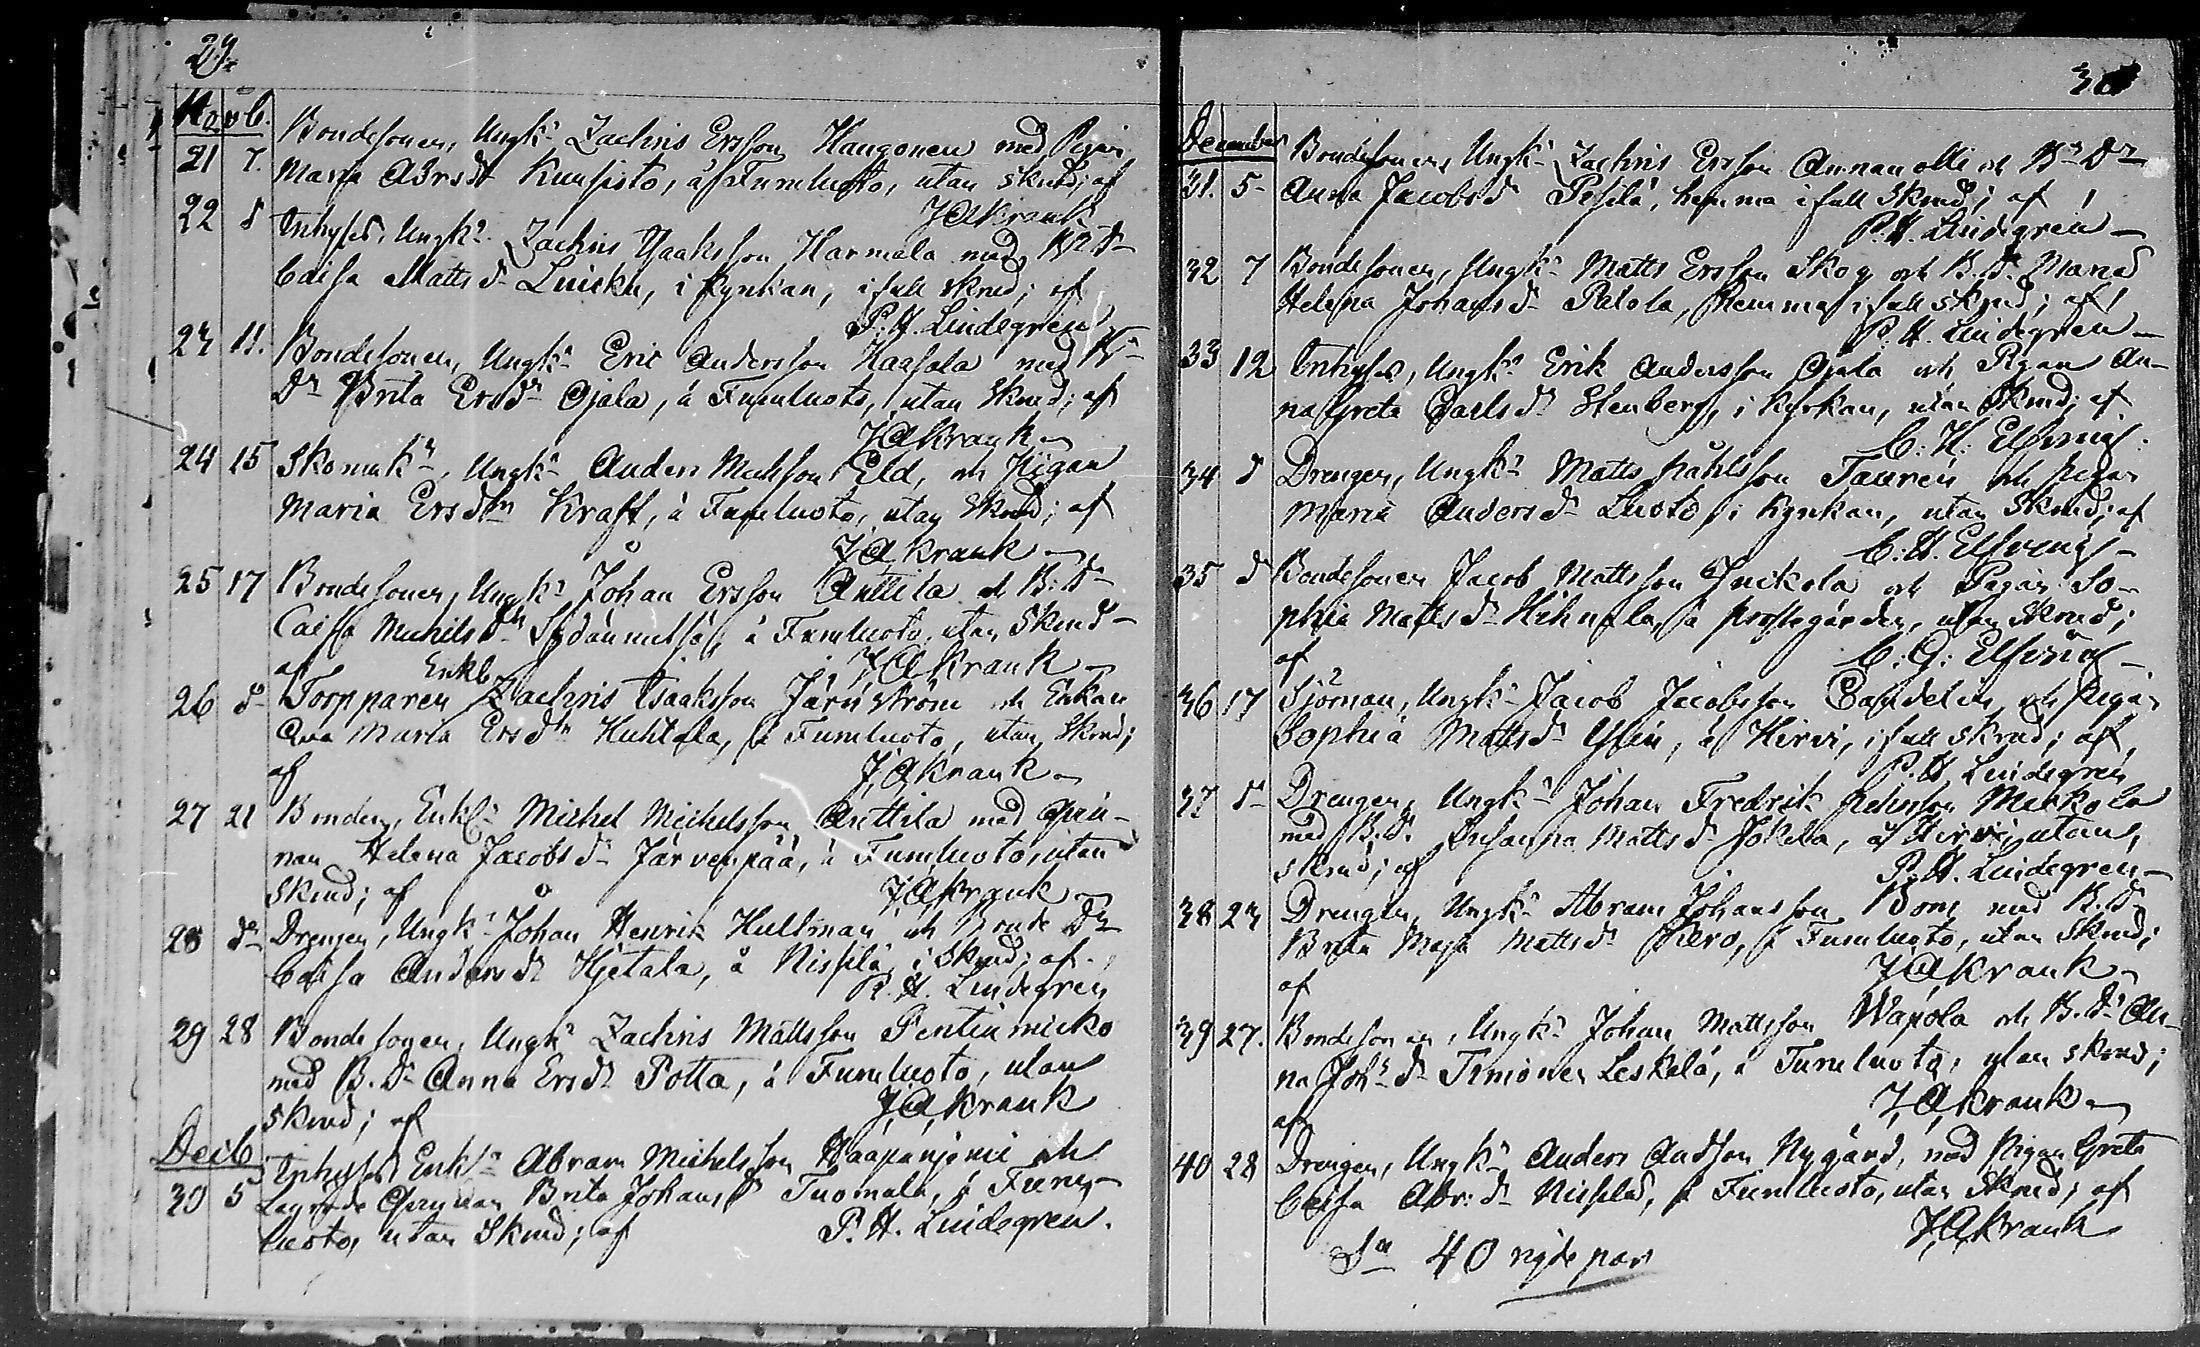 29.
Novb.
21 7. Bondesonen, Ungk: Zachris Ersson Haugonen med Pigan
Maria Abrsdr Kuusisto, å Furuluoto, utan skrud; af
JAKrank
22 d Inhyses, Ungk: Zachris Isaaksson Harmala med B. Dr
Caisa Matts dr Luicku, i Kyrkan, i full skrud; af
P. H. Lindegren
23 11. Bondesonen, Ungk: Eric Andersson Haasala med B.
Dr Brita Ersdr Ojala, å Furuluoto, utan Skrud; af
JAKrank
24 15 Skomak:, Ungk: Anders Mattsson Eld, och Pigan
Maria Ersdtr Kraft, å Furuluoto, utan Skrud; af
JAKrank
25 17 Bondesonen, Ungk: Johan Ersson Anttila och B: Dr
Caisa Michels dr Sydänmetsä, å Furuluoto, utan Skrud
af JAKrank
Enkl
26 d Torpparen Zachris Isaaksson Järnström och Enkan
Eva Maria Ersdtr Huhtala, å Furuluoto, utan Skrud;
af JAKrank
27 21 Bonden, Enkl: Michel Michelsson Anttila med Qvin-
nan Helena Jacobs dr Järvenpää, å Furuluoto, utan
Skrud; af JAKrank
28 do Drengen, Ungk: Johan Henrik Hultman och Bonde Dr
Caisa Anders dr Hjetala, å Nissilä, i Skrud; af
P. H. Lindegren
29 28 Bondesonen, Ungk: Zachris Mattsson Pentinmicko
med B. Dr Anna Ersdr Potta, å Furuluoto, utan
Skrud; af JAKrank
Decb
30 5 Inhyses Enkl: Abram Michelsson Haapaniemi och
Lägrade Qvinnan Brita Johans dr Tuomala, å Furu-
luoto, utan Skrud; af P. H. Lindegren.
30
December
31. 5 Bondesonen, Ungk: Zachris Ersson Annanolli och B: Dr
Anna Jacobs dr Pesilä, hemma i full Skrud; af
P. H. Lindegren
32 7 Bondesonen, Ungk: Matts Ersson Skog och B. Dr Maria
Helena Johans dr Palola, hemma i full skrud; af
P. H. Lindegren
33 12 Inhyses, Ungk: Erik Andersson Ojala och Pigan An-
na Greta Carls dr Stenberg, i Kyrkan, utan Skrud; af
C. H: Elfving.
34 d Drengen, Ungk: Matts Påhlsson Taurén och Pigan
Maria Anders dr Luoto, i Kyrkan, utan Skrud; af
C. H. Elfving
35 d Bondesonen Jacob Mattsson Junkola och Pigan So-
phia Matts dr Hihnala, å prostegården, utan Skrud;
af C: G: Elfving
36 17 Sjöman, Ungk: Jacob Jacobsson Candelin och Pigan
Sophia Matts dr Flin, å Hirvi, i full skrud; af
P. H. Lindegren
37 d Drengen, Ungk: Johan Fredrik Johnsson Markola
med B. Dr Susanna Matts dr Jokela, å Hirvi, utan
skrud; af P. H. Lindegren
38 23 Drengen, Ungk: Abram Johansson Bom med B. Dr
Brita Maja Matts dr Piero, å Furuluoto, utan Skrud;
af JAKrank
39 27. Bondesonen, Ungk: Johan Mattsson Wapola och B. Dr An-
na Joh: dr Timonen Leskelä, å Furuluoto, utan skrud;
af JAKrank
40 28 Drengen, Ungk: Anders Andsson Nygård, med Pigan Greta
Caisa Abr: dr Nissilä, å Furuluoto, utan Skrud; af
JAKrank
Sa 40 vigde par